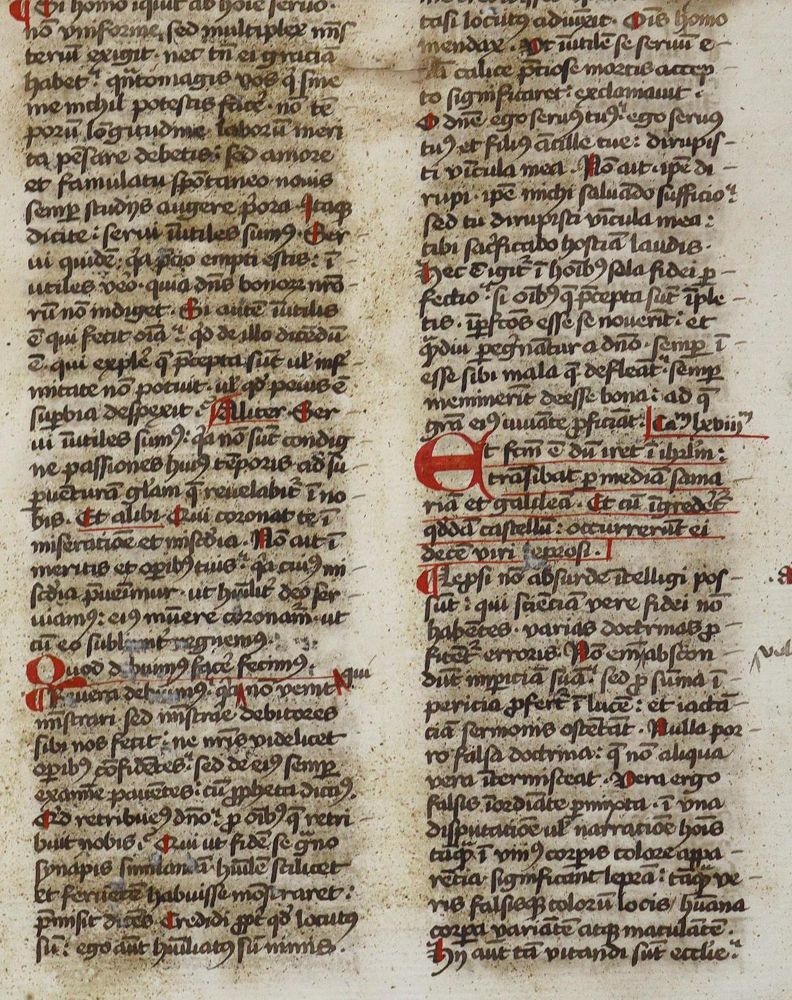 ¶ Si homo īquit ab hoīe seruo ·
nō vniforme, sed multiplex mīs
teriū exigit · nec tn̄ ei graciā
habet: qn̄tomagis vos q̄ sine
me nichil potestis fac̄e · nō tē
porū lōgitudine laborū meri
ta pēsare debetis: sed amore
et famulatu spōtaneo nouis
semp studijs augere p̄ora · Itaqꝫ
dicite: serui īutiles sumꝰ · Ser
ui quidē · qꝛ p̄cio empti estis: ī
utiles v̄o · quia dn̄s bonoꝝ nr̄o
rū nō indiget · Si autē īutilis
ē qui fecit oīa: qd de illo dicēdū
ē · qui explēe q̄ p̄cepta sūt ul' īfir
mitate nō potuit · ul' qd peius ē
supbia despexit · Aliter · Ser
ui īutiles sumꝰ: qꝛ nō sūt condig
ne passiones huiꝰ tēporis ad su
p̄uēturā gl̄am q̄ reuelabit̄ ī no
bis · Et alibi · Qui coronat te ī
miseratiōe et mīs̄dia · Nō ait ī
meritis et opibꝰ tuis: qꝛ cuiꝰ mi
sc̄dia p̄uēimur · ut huīlit̄ deo ser
uiamꝰ: eiꝰ mūere coronam̄ · ut
cū eo sublimit̄ regnemꝰ ·
Quod debuimꝰ fac̄e fecimꝰ · qui
¶ Reuera debuimꝰ: qꝛ nō venit
mīstrari sed mīstrare debitores
sibi nos fecit: ne nr̄is videlicet
opibꝰ cōfidētes: sed de eiꝰ semp
examīe pauētes: cū ꝓpheta dicāꝰ ·
Qd retribueꝫ dn̄o: ꝓ oībꝰ q̄ retri
buit nobis · Qui ut fidē se g̃no
synapis similandā · huīlē scilicet
et feruētē habuisse mōstraret:
p̄misit dicēs · Credidi ꝓpt̄ qd locutꝰ
sū: ego aūt huīliatꝰ sū nimis ·
tasi locutꝰ adiuxit · Oīs homo
mendax · Ut īutilē se seruū e
calice p̄ciose mortis accep
to significaret: exclamauit ·
O dn̄e ego seruꝰ tuꝰ: ego seruꝰ
tuꝰ et filiꝰ ācille tue: dirupis
ti vīcula mea · Nō ait · ip̄e di
rupi · ip̄e michi saluādo sufficio:
sed tu dirupisti vīcula mea:
tibi sac̄ficabo hostiā laudis ·
Hec ī hoībꝰ sola fidei p
fectio: si oībꝰ q̄ p̄cepta sūt īple
tis · īpfc̄os esse se nouerīt: et
q̄diu pegn̄atur a dn̄o · semp ī
esse sibi mala q̄ defleāt: semp
meminerīt deesse bona: ad q̄
gr̄a eiꝰ iuuāte ꝓficiāt · Ca^m lxviii^m
Et fc̄m ē dū iret ī ihrl̄m:
trāsibat p mediā sama
riā et galileā · Et cū īgredet̄
qddā castellū: occurrerūt ei
decē viri leprosi ·
¶ Leprosi nō absurde ītelligi pos
sūt: qui sciēciā vere fidei nō
habētes · varias doctrinas ꝓ
fitēt̄ erroris · Nō enī abscon
dūt īmpiciā suā: sed ꝓ suma ī
pericia ꝓferūt ī lucē: et iactā
ciā sermonis ostētāt · Nulla por
ro falsa doctrina: q̄ nō aliqua
vera ītermisceat · Vera ergo
falsis īordīate pmixta · ī vna
disputatiōe ul' narratiōe hoīs
tāqꝫ ī vniꝰ corpis colore appa
rētia: significant leprā: tāqꝫ ve
ris falsisqꝫ colorū locis hūana
corpa variātē atqꝫ maculātē ·
Hij aūt tā vitandi sūt ecclie: